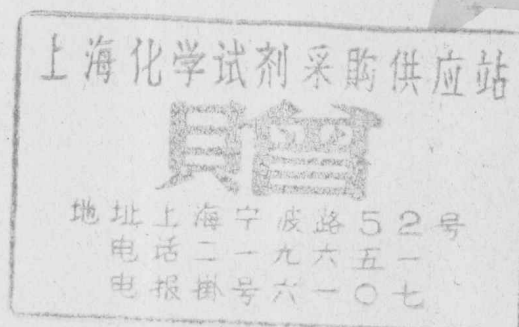 上海化学试剂采购供应站
赠
地址上海宁波路52号
电话二一九六五一
电报掛号六一〇七